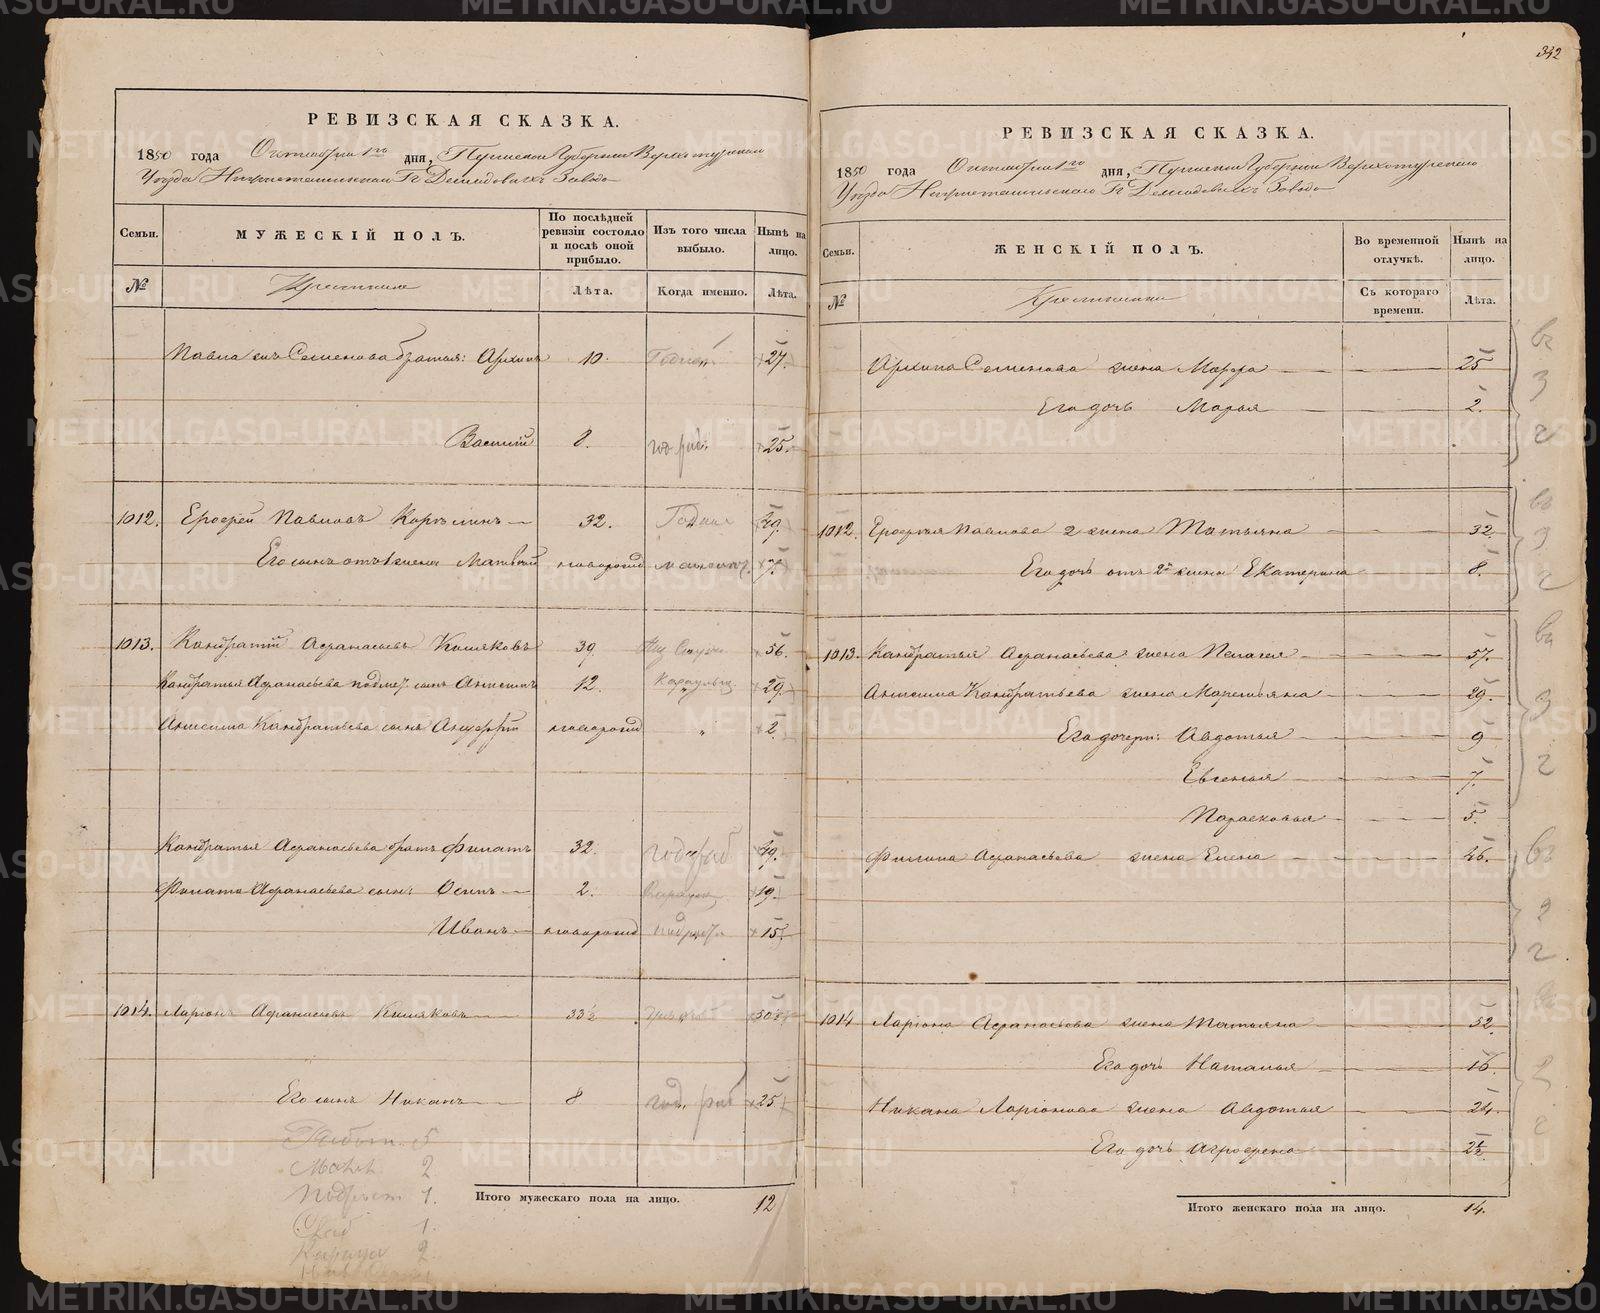 342
РЕВИЗСКАЯ СКАЗКА.
1850 года Октября 1го дня, Пермской Губернии Верхотурскаго
Уезда Нижнетагильскаго Гг Демидовыхъ Завода
Семьи. МУЖЕСКІЙ ПОЛЪ. По послѣдней ревизіи состояло и послѣ оной прибыло. Изъ того числа выбыло. Нынѣ на лицо.
№ Крестьяне Лѣта. Когда именно. Лѣта.
Павла Семенова братья: Архипъ 10. Годной 27.
Василій 8. год раб. 25.
1012. Ерофей Павловъ Корелинъ 32. Годной 49.
Его сынъ отъ 1 жены Матвей новорожд малолѣт. 7.
1013. Кондратій Афанасьевъ Кошяковъ 39 56.
Кандратья Афанасьева сынъ Анисимъ 12. Караульщ 29.
Анисима Кандратьева сынъ новорожд „ 2.
Кандратья Афанасьева братъ Филатъ 32. год раб 49.
Филата Афанасьева сын: Осипъ 2. 19.
Иванъ новорожд подрост 15.
1014. Ларіонъ Афанасьевъ Кошяковъ 33½ 50½
Его сынъ Никанъ 8 год. раб 25
Работ. 5
Малол 2
Подрост 1.
1.
Караул 2
Итого мужескаго пола на лицо. 12
РЕВИЗСКАЯ СКАЗКА.
1850 года Октября 1го дня, Пермской Губерніи Верхотурскаго
Уезда Нижнетагильскаго Гг Демидовыхъ Завода
Семьи. ЖЕНСКІЙ ПОЛЪ. Во временной отлучкѣ. Нынѣ на лицо.
№ Крестьянки Съ котораго времени. Лѣта.
Архипа Семенова жена Марфа 25
Его дочь Марья 2.
1012. Ерофея Павлова 2 жена Татьяна 32.
Его дочь отъ 2й жены Екатерина 8.
1013. Кандратья Афанасьева жена Пелагея 57.
Анисима Кандратьева жена Маремьяна 29.
Его дочери: Авдотья 9
Евгенья 7.
Парасковья 5.
Филата Афанасьева жена Елена 46.
1014 Ларіона Афанасьева жена Татьяна 52.
Его дочь Наталья 16.
Никана Ларіонова жена Авдотья 24.
Его дочь Агрофена 2½
Итого женскаго пола на лицо. 14.
METRIKI.GASO-URAL.RU